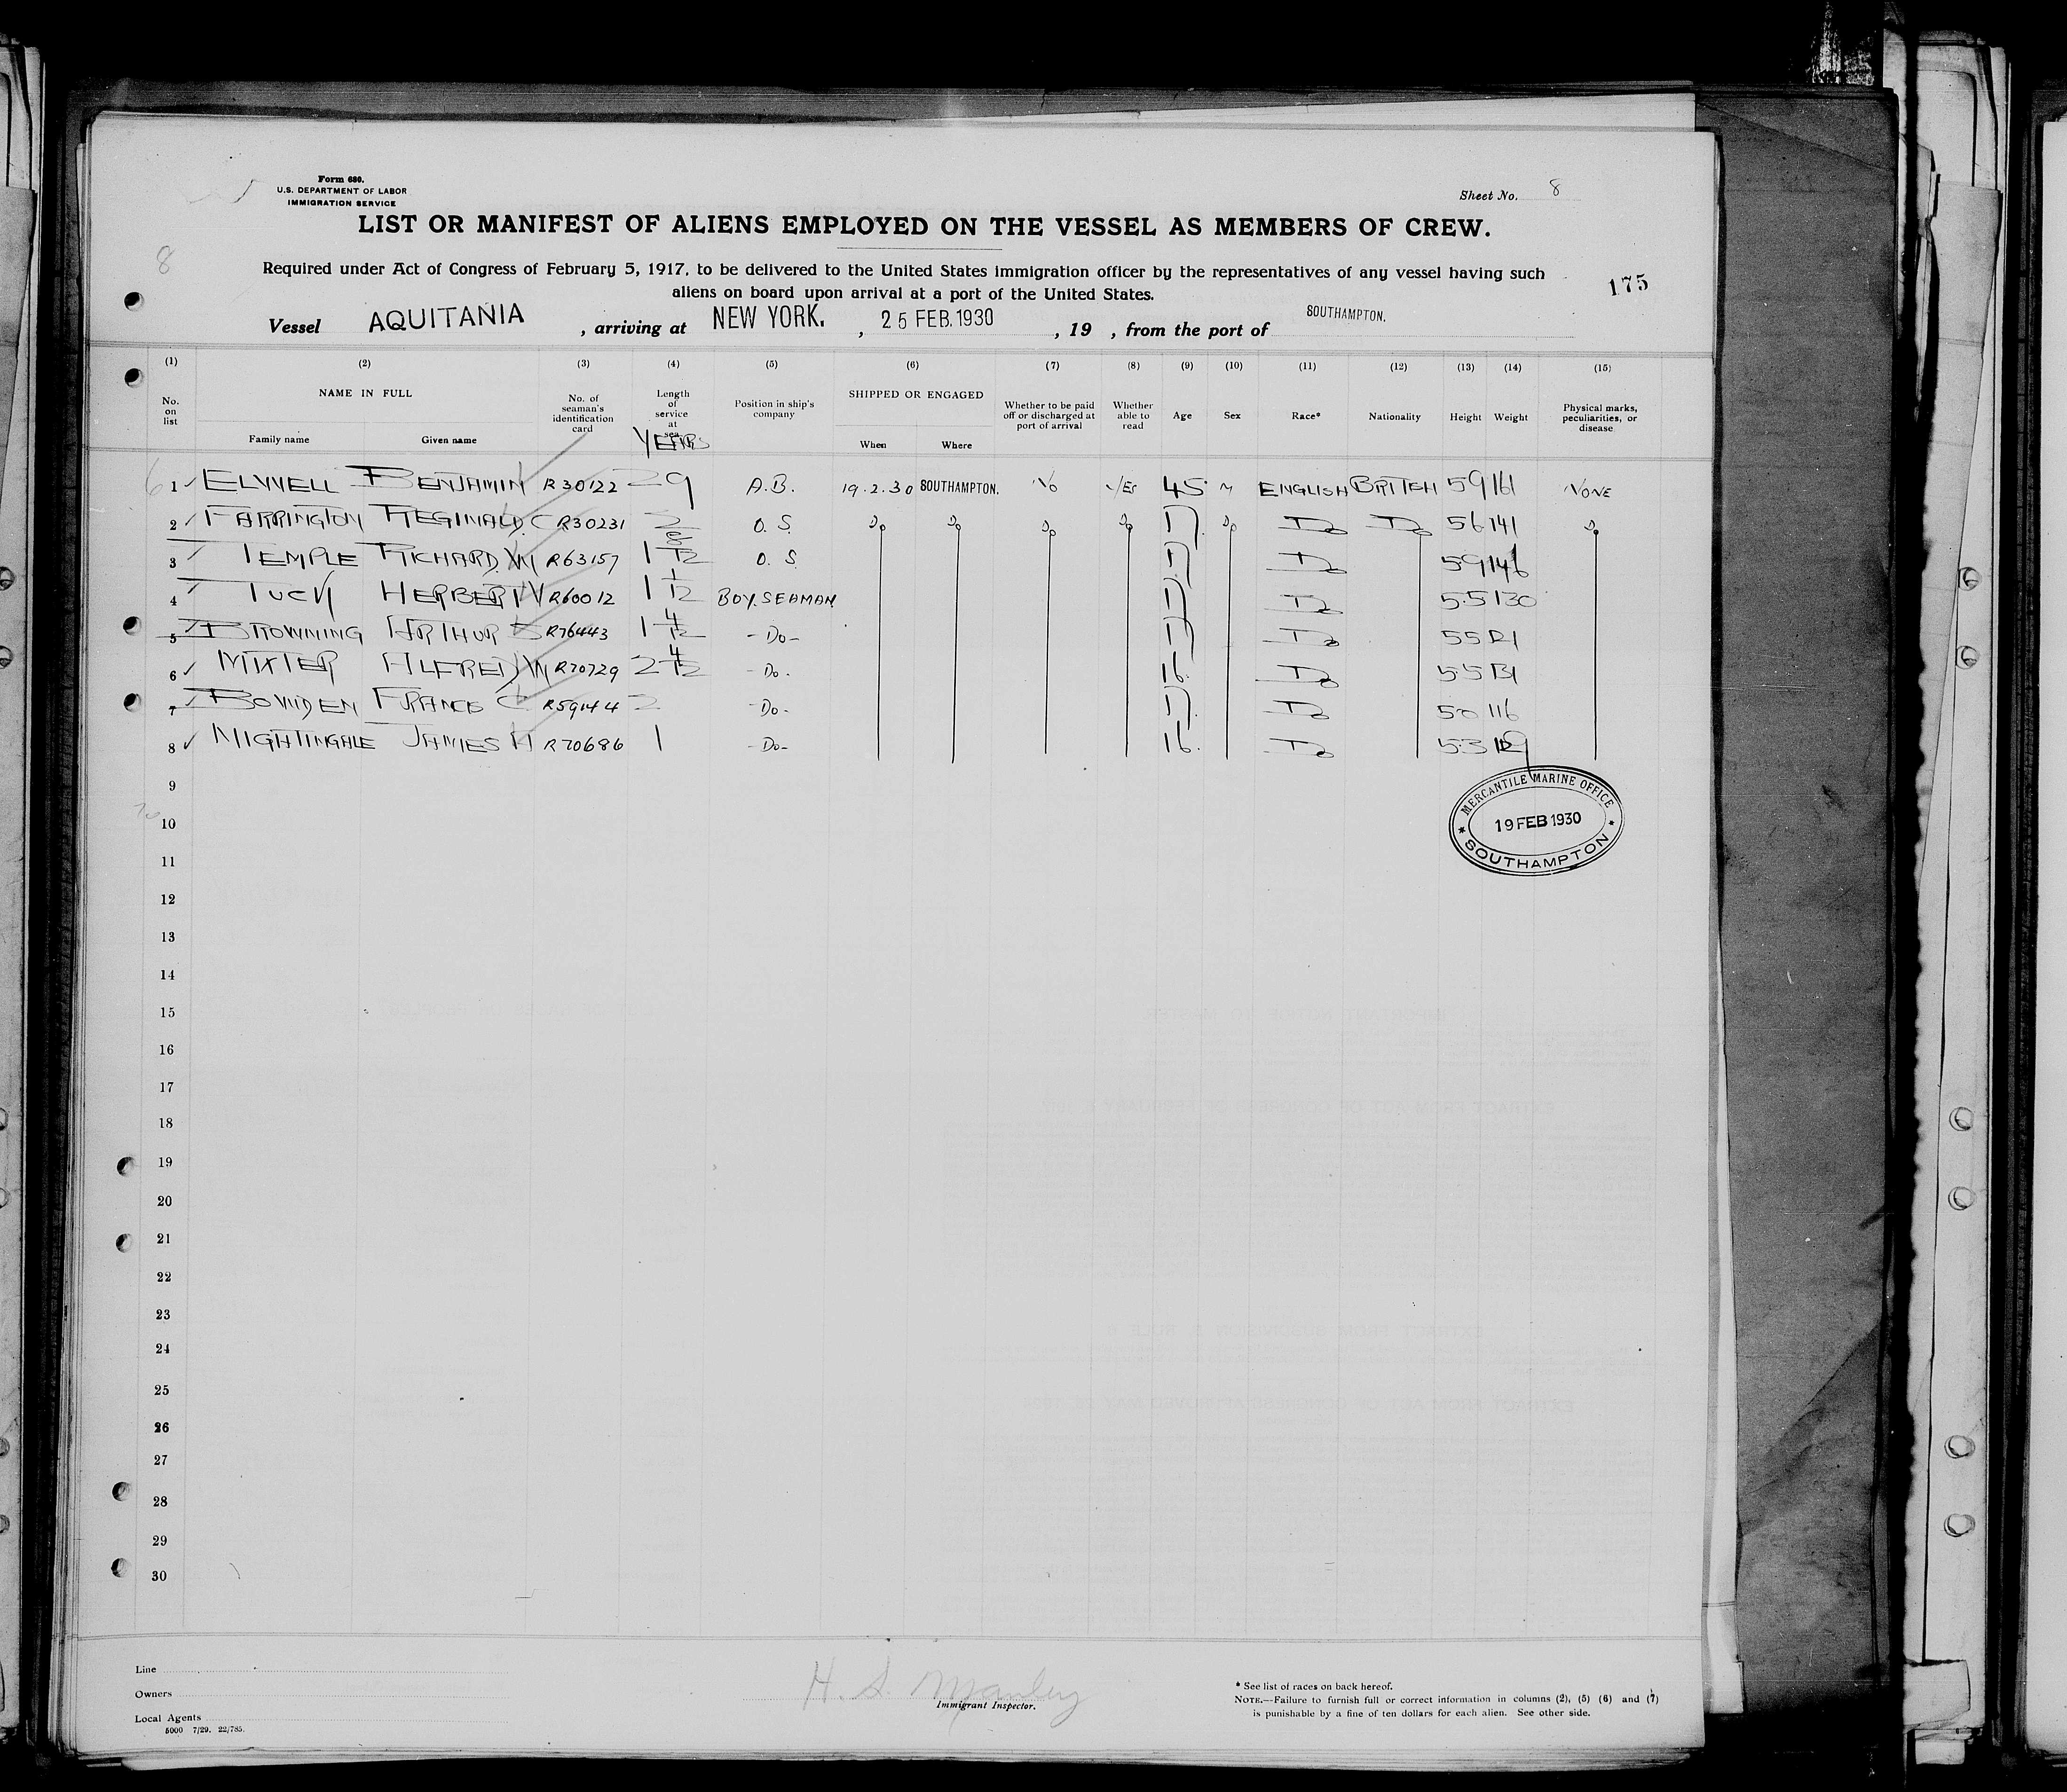 Form 680.
U.S. DEPARTMENT OF LABOR
IMMIGRATION SERVICE
Sheet No. 8
LIST OR MANIFEST OF ALIENS EMPLOYED ON THE VESSEL AS MEMBERS OF CREW.
8
Required under Act of Congress of February 5, 1917, to be delivered to the United States immigration officer by the representatives of any vessel having such
aliens on board upon arrival at a port of the United States.
175
Vessel AQUITANIA , arriving at NEW YORK. , 25 FEB. 1930 , 19 , from the port of SOUTHAMPTON.
(1) (2) (3) (4) (5) (6) (7) (8) (9) (10) (11) (12) (13) (14) (15)
No. on list NAME IN FULL Family name Given name No. of seaman's identification card Length of service at sea YEARS Position in ship's company SHIPPED OR ENGAGED When Where Whether to be paid off or discharged at port of arrival Whether able to read Age Sex Race* Nationality Height Weight Physical marks, peculiarities, or disease
1 ELWELL BENJAMIN R30122 29 A.B. 19.2.30 SOUTHAMPTON. No YES 45 M ENGLISH BRITISH 59 161 NONE
2 FARRINGTON REGINALD C R30231 O.S. Do Do Do Do 17 Do Do Do 56 141 Do
3 TEMPLE RICHARD W R63157 O.S. 17 Do 59 146
4 TUCK HERBERT W R60012 1 1/12 BOY.SEAMAN 17 Do 5.5 130
5 BROWNING ARTHUR S R76443 1 4/12 -Do- 17 Do 55 121
6 MIXTER ALFRED W R70729 2 4/12 -Do. 16. Do 5.5 131
7 BOWDEN FRANCE C R59144 2 -Do- 17. Do 50 116
8 NIGHTINGALE JAMES H R70686 1 -Do- 16. Do 5.3
9
MERCANTILE MARINE OFFICE
19 FEB 1930
SOUTHAMPTON
10
11
12
13
14
15
16
17
18
19
20
21
22
23
24
25
26
27
28
29
30
Line
Owners
Local Agents
5000 7/29. 22/785.
H. S. Manley
Immigrant Inspector.
* See list of races on back hereof.
NOTE.—Failure to furnish full or correct information in columns (2), (5) (6) and (7)
is punishable by a fine of ten dollars for each alien. See other side.